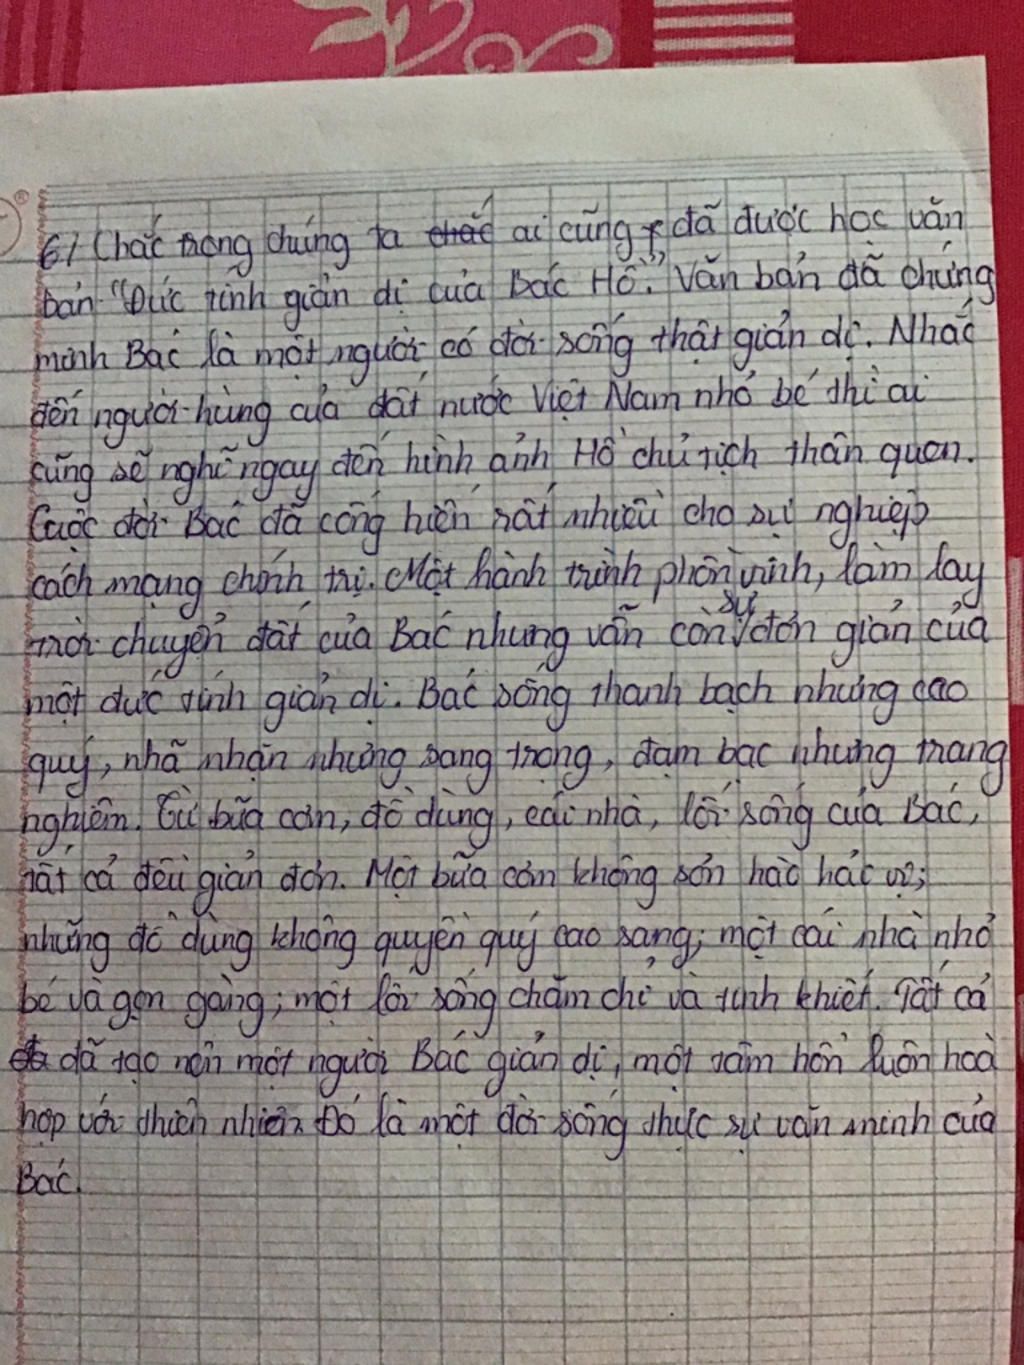 6/ Chắc trong chúng ta ai cũng đã được học văn
bản "Đức tính giản dị của Bác Hồ". Văn bản đã chứng
minh Bác là một người có đời sống thật giản dị. Nhắc
đến người hùng của đất nước Việt Nam nhỏ bé thì ai
cũng sẽ nghĩ ngay đến hình ảnh Hồ chủ tịch thân quen.
Cuộc đời Bác đã cống hiến rất nhiều cho sự nghiệp
cách mạng chính trị. Một hành trình phồn vinh, làm lay
trời chuyển đất của Bác nhưng vẫn còn sự đơn giản của
một đức tính giản dị. Bác sống thanh bạch nhưng cao
quý, nhã nhặn nhưng sang trọng, đạm bạc nhưng trang
nghiêm. Từ bữa cơm, đồ dùng, cái nhà, lối sống của Bác,
tất cả đều giản đơn. Một bữa cơm không sơn hào hải vị;
những đồ dùng không quyền quý cao sang; một cái nhà nhỏ
bé và gọn gàng; một lối sống chăm chỉ và tinh khiết. Tất cả
đã tạo nên một người Bác giản dị, một tâm hồn luôn hoà
hợp với thiên nhiên. Đó là một đời sống thực sự văn minh của
Bác.